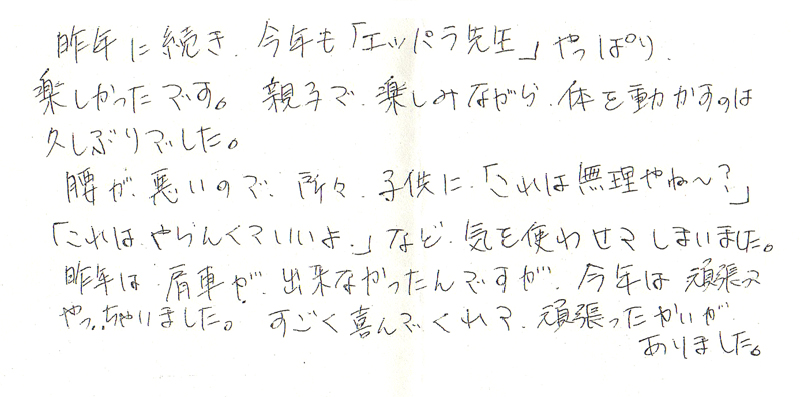 昨年に続き、今年も「エッパラ先生」やっぱり、
楽しかったです。親子で、楽しみながら、体を動かすのは
久しぶりでした。
腰が、悪いので、所々、子供に、「これは無理やね〜?」
「これは、やらんくていいよ、」など、気を使わせてしまいました。
昨年は、肩車が、出来なかったんですが、今年は頑張って
やっちゃいました。すごく喜んでくれて、頑張ったかいが
ありました。